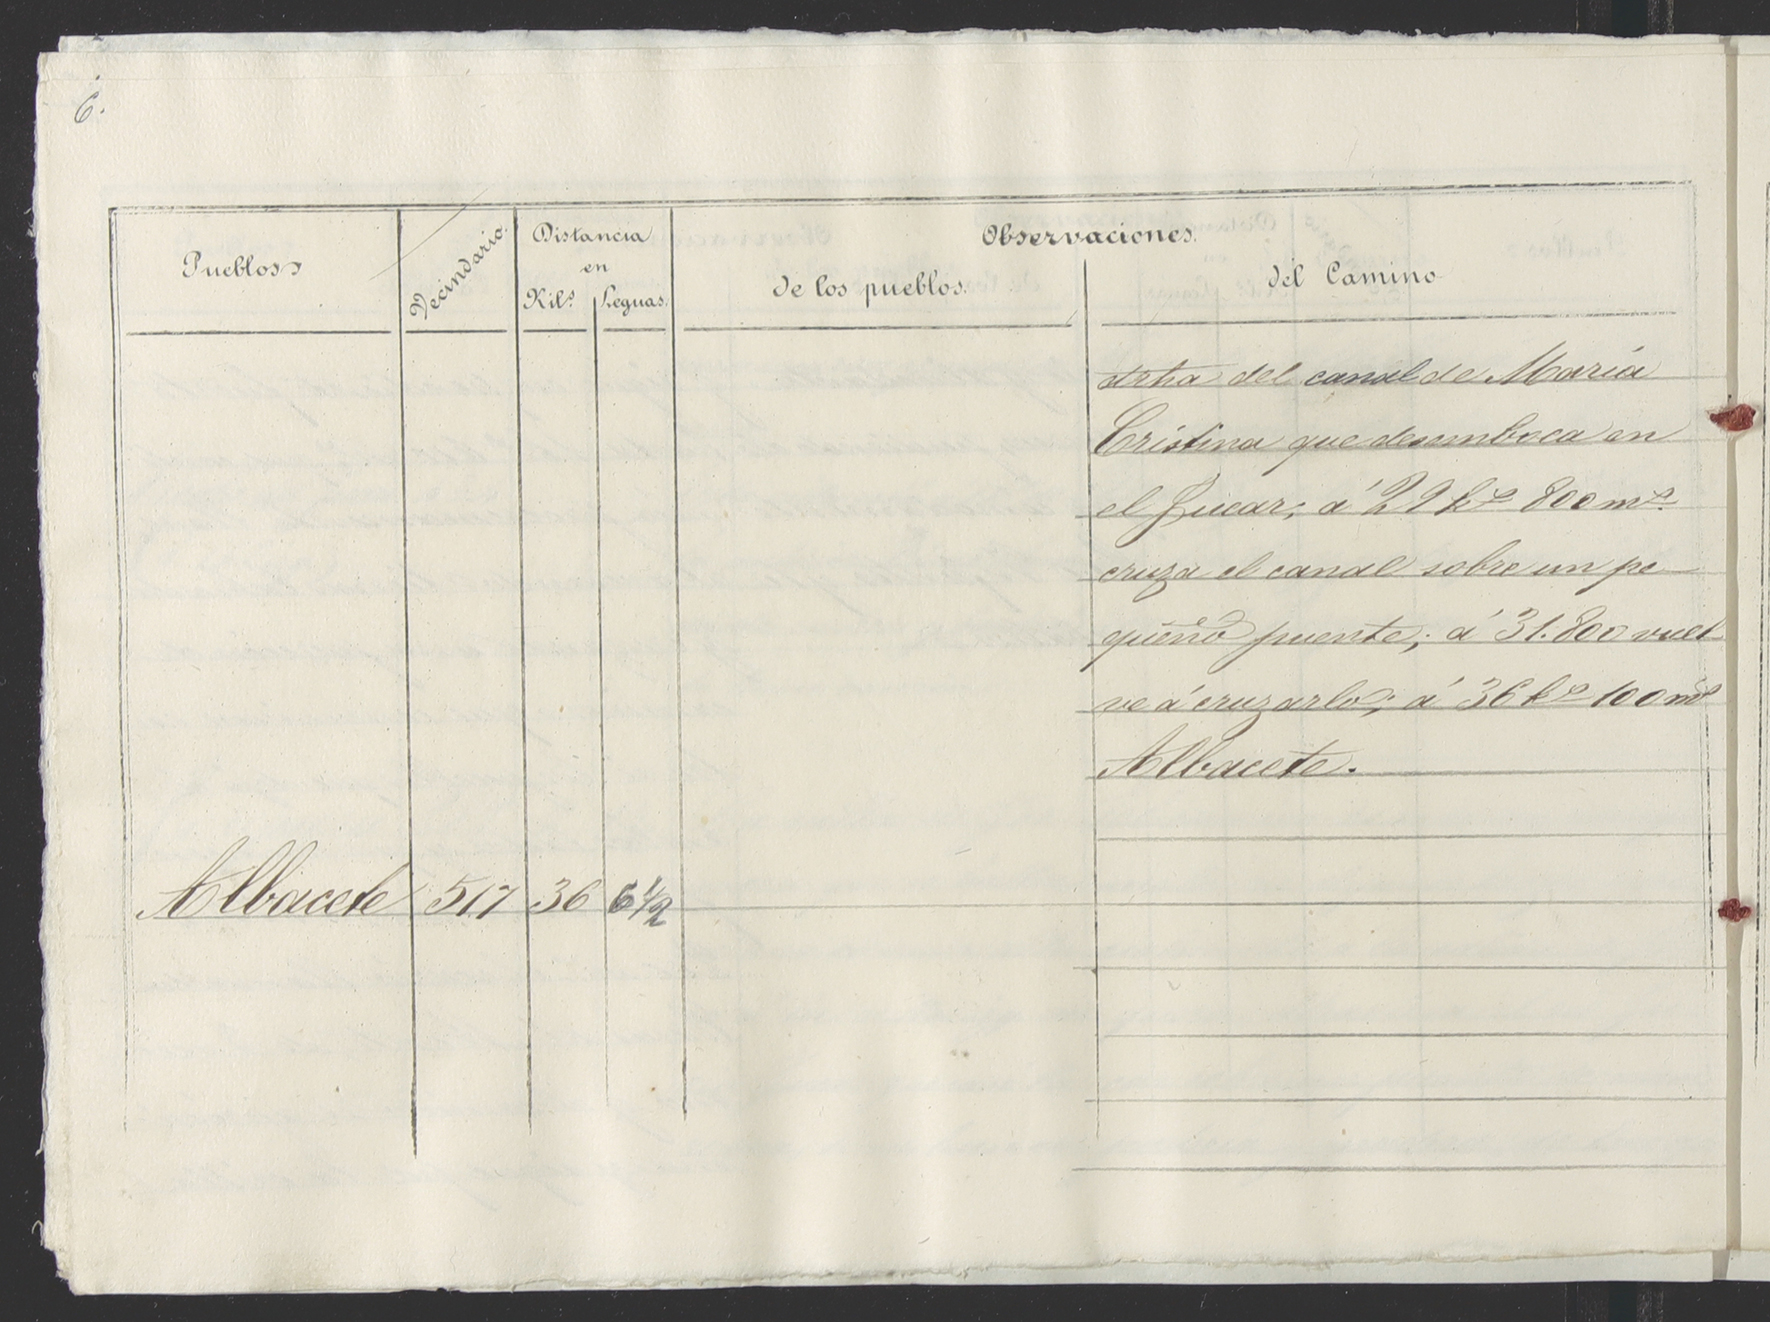 6.
Pueblos
Vecindario.
Distancia
en
Kils.
Leguas.
Observaciones.
de los pueblos.
del Camino
drha del canal de María
Cristina que desemboca en
el Jucar; á 29 ks 800 ms.
cruza el canal sobre un pe
queño puente; á 31.800 vuel
ve á cruzarlo; á 36 ks 100 ms
Albacete.
Albacete 517 36 6 1/2